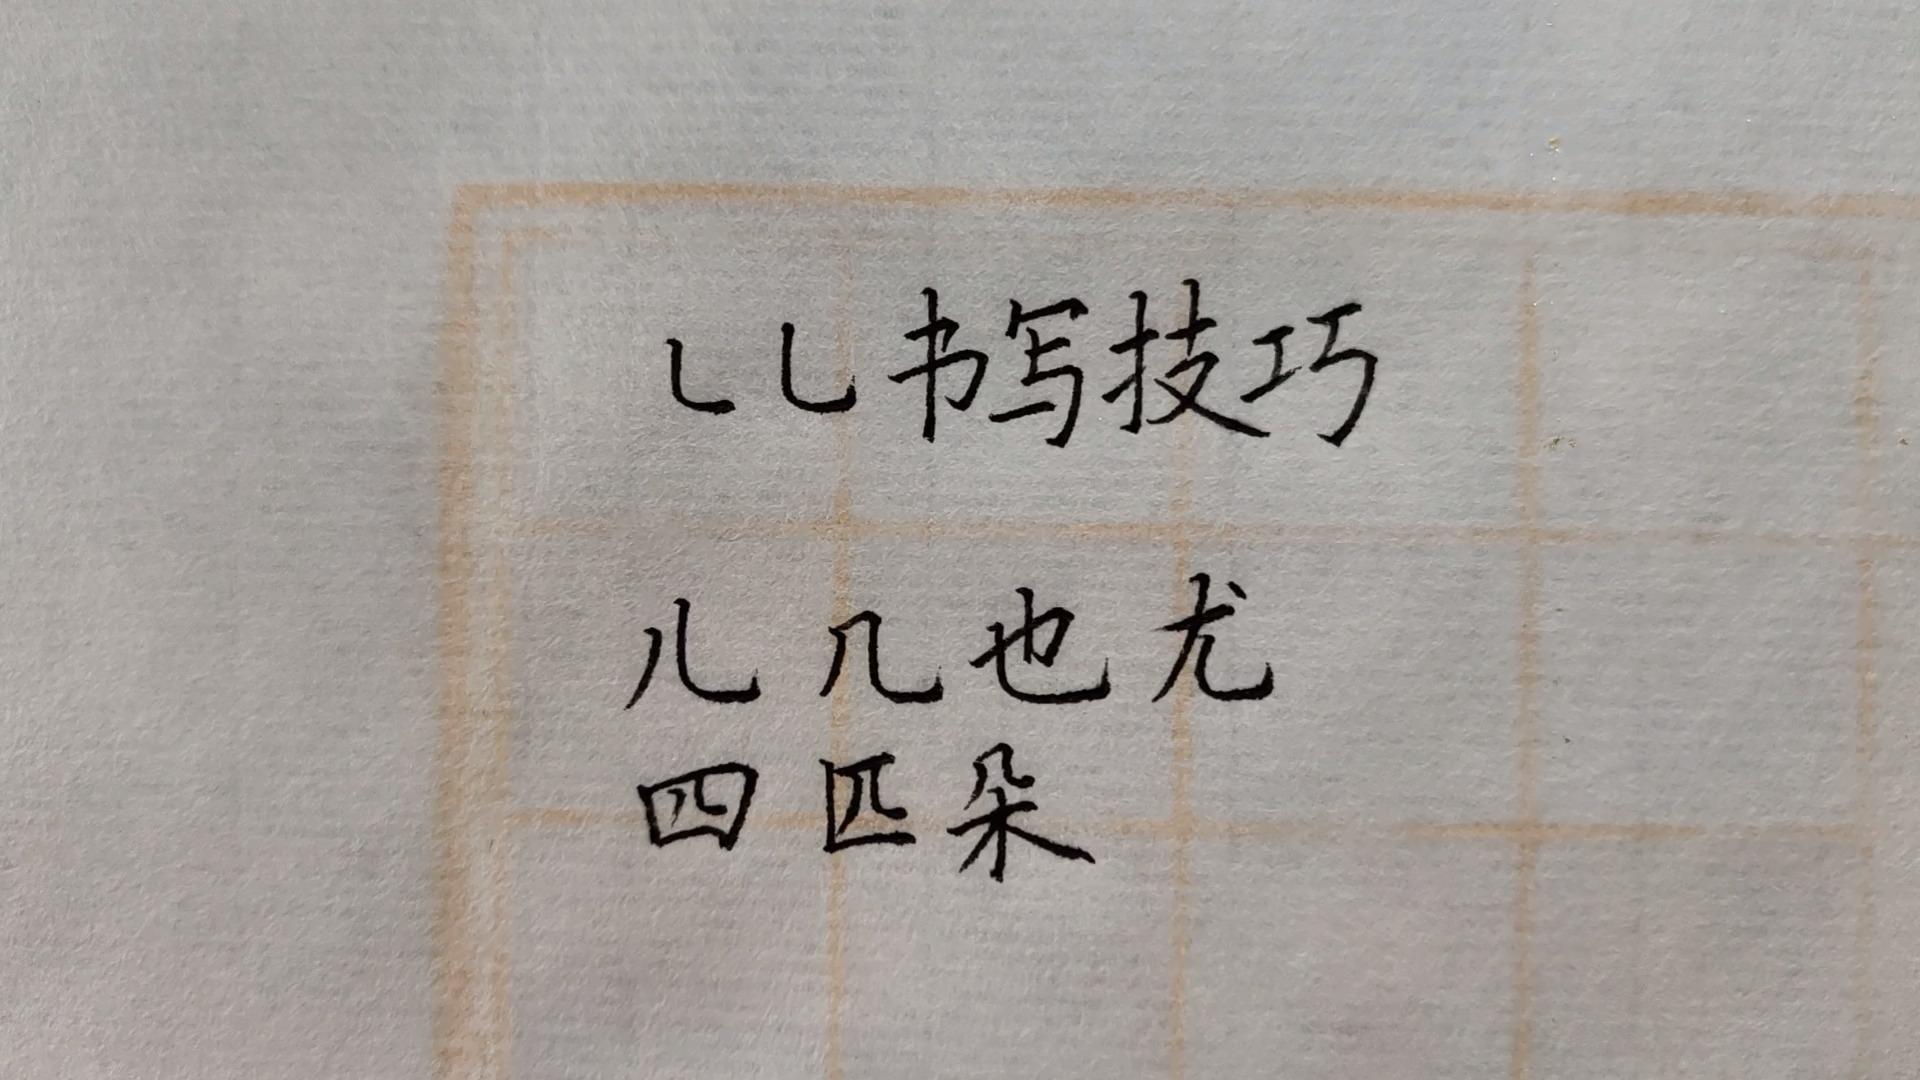 ㇄乚书写技巧
儿几也尤
四匹朵